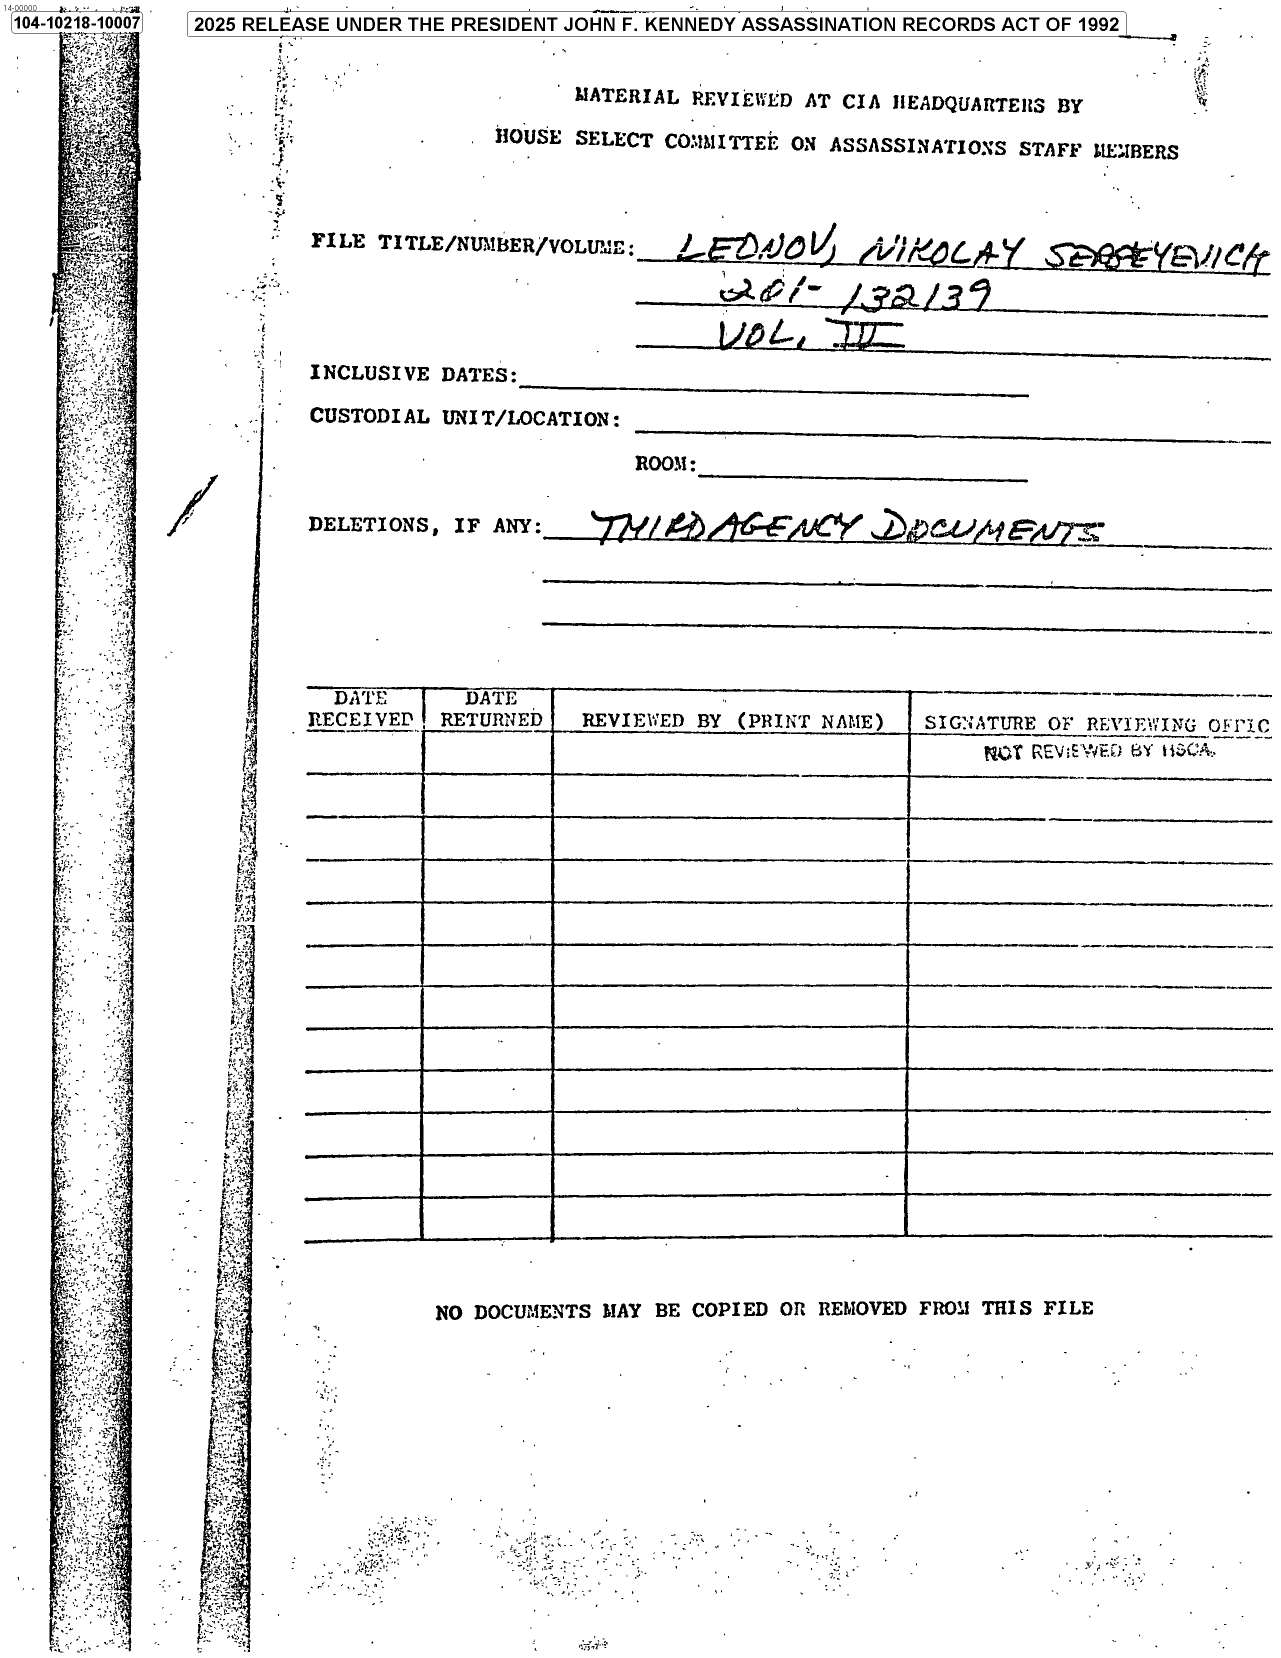 14-00000
104-10218-10007
2025 RELEASE UNDER THE PRESIDENT JOHN F. KENNEDY ASSASSINATION RECORDS ACT OF 1992
MATERIAL REVIEWED AT CIA HEADQUARTERS BY
HOUSE SELECT COMMITTEE ON ASSASSINATIONS STAFF MEMBERS
FILE TITLE/NUMBER/VOLUME: LEDNOV, NIKOLAY SERGEYEVICH
201-132139
VOL. IV
INCLUSIVE DATES:
CUSTODIAL UNIT/LOCATION:
ROOM:
DELETIONS, IF ANY: THIRD AGENCY DOCUMENTS
DATE RECEIVED DATE RETURNED REVIEWED BY (PRINT NAME) SIGNATURE OF REVIEWING OFFIC
NOT REVIEWED BY HSCA.
NO DOCUMENTS MAY BE COPIED OR REMOVED FROM THIS FILE